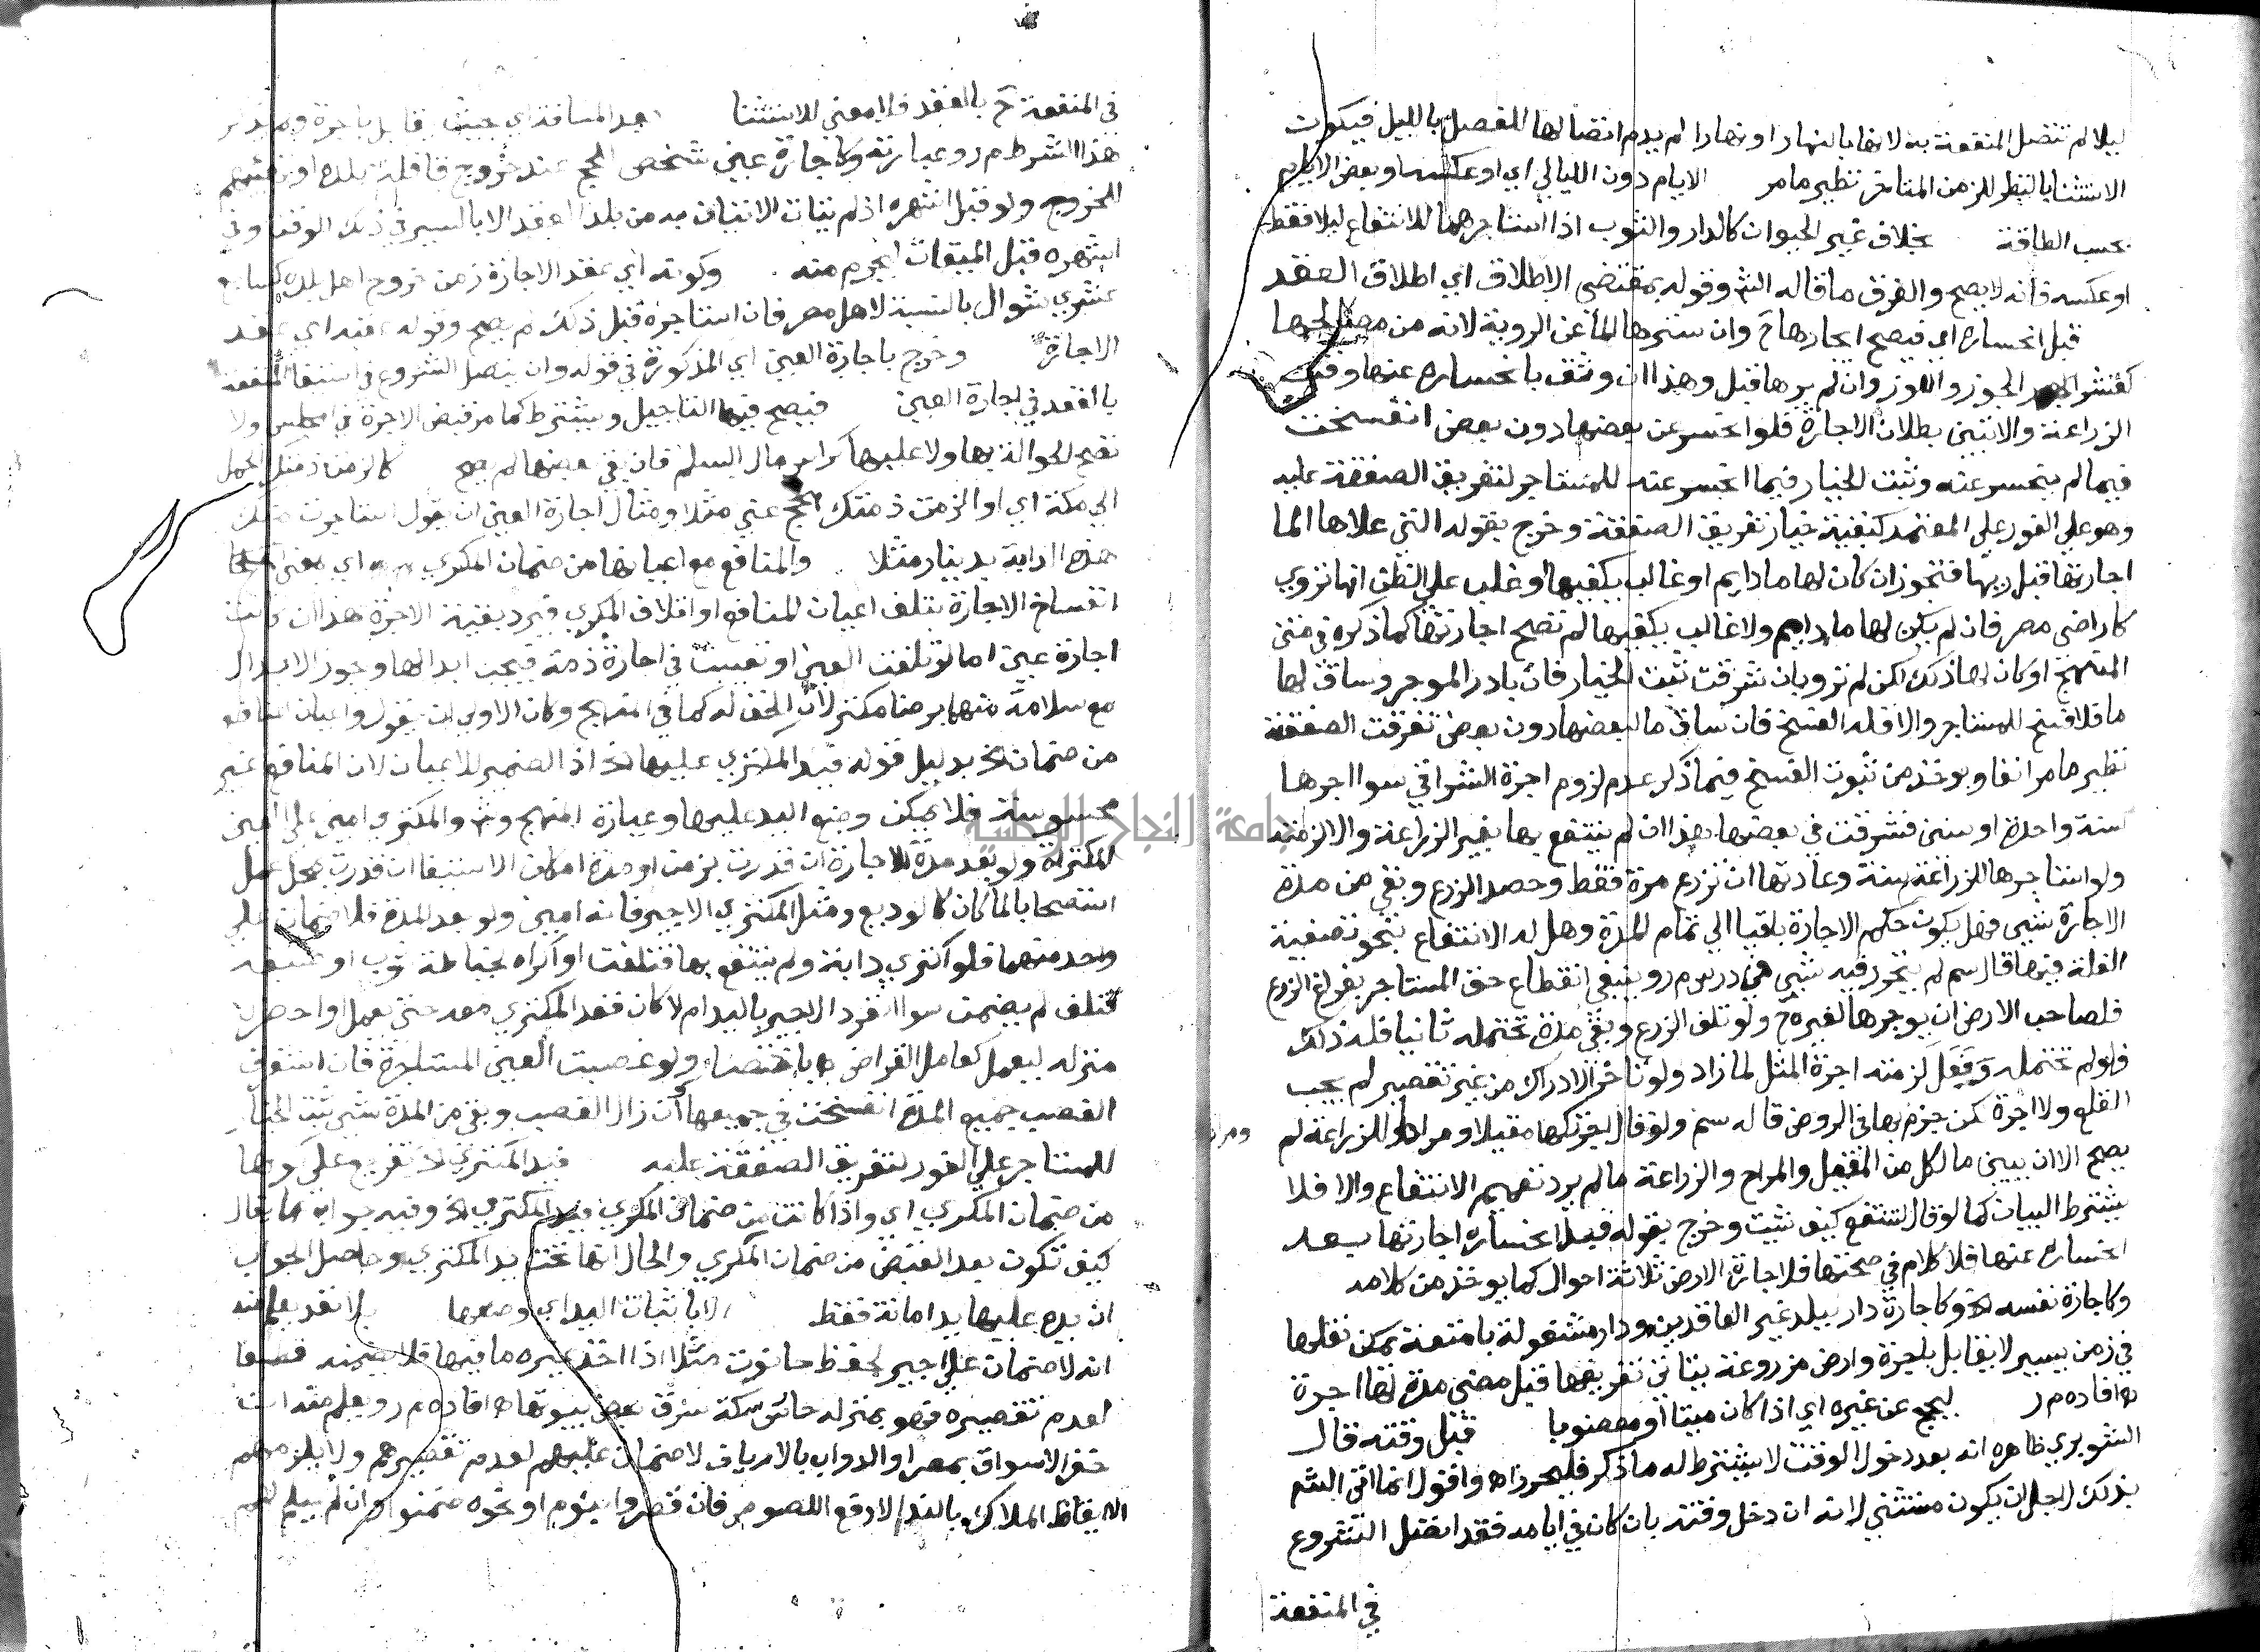 ليلا لم تتصل المنفعة به لانها بالنهار او نهارا لم يدم اتصالها للفصل بالليل فيكون
الاستثنا بالنظر للزمن المتاخر نظير ما مر الايام دون الليالي اي او عكسه او بعض الايام
بحسب الطاقة بخلاف غير الحيوان كالدار والثوب اذا استاجرهما للانتفاع ليلا فقط
او عكسه فانه لا يصح والفرق ما قاله الش وقوله بمقتضى الاطلاق اي اطلاق العقد
قبل انحساره اي فيصح ايجارها ح وان سترها الما عن الروية لانه من مصلحتها
كقشر الجوز واللوز وان لم يرها قبل وهذا ان وثق بانحساره عنها وقت
الزراعة والا تبين بطلان الاجارة فلو انحسر عن بعضها دون بعض انفسخت
فيما لم ينحسر عنه وثبت الخيار فيما انحسر عنه للمستاجر لتفريق الصفقة عليه
وهو على الفور على المعتمد كبقية خيار تفريق الصفقة وخرج بقوله التي علاها الما
اجارتها قبل ريها فتجوز ان كان لها ما دايم او غالب يكفيها او غلب على الظن انها تروي
كاراضي مصر فان لم يكن لها ما دايم ولا غالب يكفيها لم تصح اجارتها كما ذكره في متن
المنهج او كان لها ذلك لكن لم ترو بان شرقت ثبت الخيار فان بادر الموجر وساق لها
ما فلا فسخ للمستاجر والا فله الفسخ فان ساق ما لبعضها دون بعض تفرقت الصفقة
نظير ما مر انفا ويوخذ من ثبوت الفسخ فيما ذكر عدم لزوم اجرة الشراقي سوا اجرها
سنة واحدة او سنين فشرقت في بعضها هذا ان لم ينتفع بها بغير الزراعة والا لزمته
ولو استاجرها للزراعة سنة وعادتها ان تزرع مرة فقط وحصد الزرع وبقي من مدة
الاجارة شي فهل يكون حكم الاجارة باقيا الى تمام المدة وهل له الانتفاع بنحو تصفية
الغلة فيها قال سم لم يتحرر فيه شي في درس م ر وينبغي انقطاع حق المستاجر بفراغ الزرع
فلصاحب الارض ان يوجرها لغيره ح ولو تلف الزرع وبقي مدة تحتمله ثانيا فله ذلك
فلو لم تحتمله وفعل لزمته اجرة المثل لما زاد ولو تاخر الادراك من غير تقصير لم يجب
القلع ولا اجرة لكن جزم بها في الروض قاله سم ولو قال اجرتكها مقيلا ومراحا وللزراعة لم
يصح الا ان يبين ما لكل من المقيل والمراح والزراعة ما لم يرد تعميم الانتفاع والا فلا
يشترط البيان كما لو قال لتنتفع كيف شيت وخرج بقوله قبل انحساره اجارتها بعد
انحساره عنها فلا كلام في صحتها فلاجارة الارض ثلاثة احوال كما يوخذ من كلامه
وكاجارة نفسه الخ وكاجارة دار ببلد غير العاقدين ودار مشغولة بامتعة يمكن نقلها
في زمن يسير لا يقابل باجرة وارض مزروعة يتاتى تفريغها قبل مضي مدة لها اجرة
اه افاده م ر ليحج عن غيره اي اذا كان ميتا او معضوبا قبل وقته قال
الشوبري ظاهره انه بعد دخول الوقت لا يشترط له ما ذكر فليحرر اه واقول انما اتى الش
بذلك لاجل ان يكون مستثنى لانه ان دخل وقته بان كان في ايامه فقد اتصل الشروع
في المنفعة
في المنفعة ح بالعقد فلا معنى للاستثنا بعد المسافة اي بحيث يقابل باجرة ولم يذكر
هذا الشرط م ر وعبارته وكاجارة عين شخص للحج عند خروج قافلة بلده او تهيئهم
للخروج ولو قبل اشهره اذ لم يتات الاتيان به من بلد العقد الا بالسير في ذلك الوقت وفي
اشهره قبل الميقات ليحرم منه وكونه اي عقد الاجارة زمن خروج اهل بلده كسابع
عشري شوال بالنسبة لاهل مصر فان استاجره قبل ذلك لم يصح وقوله عقده اي عقد
الاجارة وخرج باجارة العين اي المذكورة في قوله وان يتصل الشروع في استيفا المنفعة
بالعقد في اجارة العين فيصح فيها التاجيل ويشترط كما مر قبض الاجرة في المجلس ولا
تصح الحوالة بها ولا عليها كراس مال السلم فان بقي بعضها لم يصح كالزمت ذمتك الحمل
الى مكة اي او الزمت ذمتك الحج عني مثلا ومثال اجارة العين ان يقول استاجرت منك
هذه الدابة بدينار مثلا والمنافع مع اعيانها من ضمان المكري اي معنى
انفساخ الاجارة بتلف اعيان المنافع او اتلاف المكري فيرد بقية الاجرة هذا ان كانت
اجارة عين اما لو تلفت العين او تعيبت في اجارة ذمة فيجب ابدالها وجوز الابدال
مع سلامة منهما برضا مكتر لان الحق له كما في المنهج وكان الاولى ان يقول واعيان المنافع
من ضمان الخ بدليل قوله فيد المكتري عليها الخ اذ الضمير للاعيان لان المنافع غير
محسوسة فلا يمكن وضع اليد عليها وعبارة المنهج وش والمكتري امين على العين
المكتراة ولو بعد مدة الاجارة ان قدرت بزمن او مدة امكان الاستيفا ان قدرت بمحل عمل
استصحابا لما كان كالوديع ومثل المكتري الاجير فانه امين ولو بعد المدة فلا ضمان على
واحد منهما فلو اكترى دابة ولم ينتفع بها فتلفت او اكراه لخياطة ثوب او صبغه
فتلف لم يضمن سوا انفرد الاجير باليد ام لا كان قعد المكتري معه حتى يعمل او احضره
منزله ليعمل كعامل القراض اه باختصار ولو غصبت العين المستاجرة فان استغرق
الغصب جميع المدة انفسخت في جميعها ان زال الغصب وبقي من المدة شي ثبت الخيار
للمستاجر على الفور لتفريق الصفقة عليه فيد المكتري الخ تفريع على كونها
من ضمان المكري اي واذا كانت من ضمان المكري فيد المكتري الخ وفيه جواب عما يقال
كيف تكون بعد القبض من ضمان المكري والحال انها تحت يد المكتري وحاصل الجواب
ان يده عليها يد امانة فقط الا باثبات اليد اي وضعها بلا تعد يعلم منه
انه لا ضمان على اجير لحفظ حانوت مثلا اذا اخذ غيره ما فيها فلا يضمنه قطعا
لعدم تقصيره فهو بمنزلة حارس سكة سرق بعض بيوتها اه افاده م ر ويعلم منه ان
خفر الاسواق بمصر او الدواب بالارياف لا ضمان عليهم لعدم تقصيرهم ولا يلزمهم
الا يقاظ الملاك بالندا لا دفع اللصوص فان قصروا بنوم او نحوه ضمنوا وان لم يسلم لهم